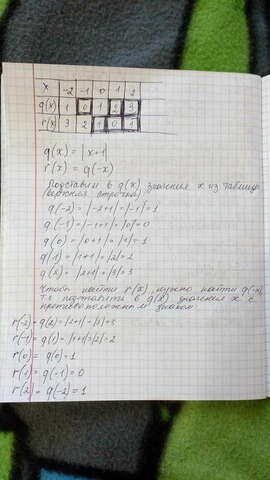 x -2 -1 0 1 2
q(x) 1 0 1 2 3
r(x) 3 2 1 0 1
q(x) = |x+1|
r(x) = q(-x)
Подставим в q(x) значения x из таблицы
(верхняя строчка)
q(-2) = |-2+1| = |-1| = 1
q(-1) = |-1+1| = |0| = 0
q(0) = |0+1| = |1| = 1
q(1) = |1+1| = |2| = 2
q(2) = |2+1| = |3| = 3
Чтобы найти r(x), нужно найти q(-x),
т.е. подставить в q(x) значения x с
противоположным знаком
r(-2) = q(2) = |2+1| = |3| = 3
r(-1) = q(1) = |1+1| = |2| = 2
r(0) = q(0) = 1
r(1) = q(-1) = 0
r(2) = q(-2) = 1